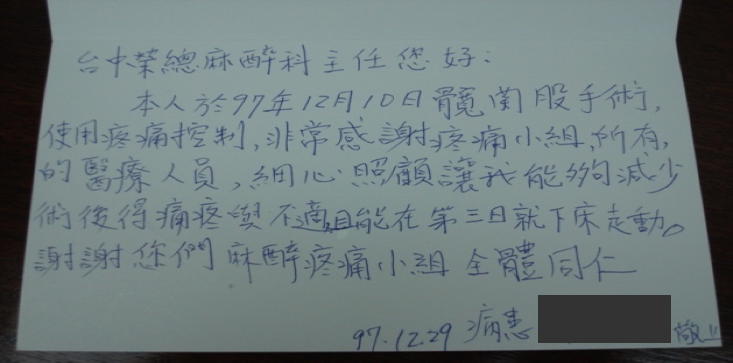 台中榮總麻醉科主任您好:
本人於97年12月10日髖関股手術,
使用疼痛控制,非常感謝疼痛小組,所有,
的醫療人員,細心照顧讓我能夠減少
術後得痛疼與不適且能在第三日就下床走動。
謝謝您們麻醉疼痛小組全體同仁
97.12.29 病患 敬上